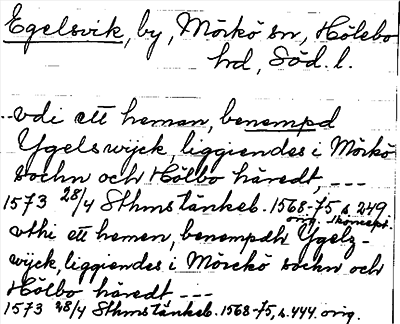 Egelsvik, by, Mörkö sn, Hölebo
hd, Söd. l.
..vdi ett heman, benempd
Ygelswijck, liggiendes i Mörkö
sochn och Hölbo häredt, ---
1573 28/4 Sthms tänkeb. 1568-75, s. 249
orig. + koncept.
vthi ett hemen, benempdh Ygelz-
wijck, liggiendes i Mörckö sochn och
Hölbo häredt ---
1573 28/4 Sthms tänkeb. 1568-75, s. 444. orig.